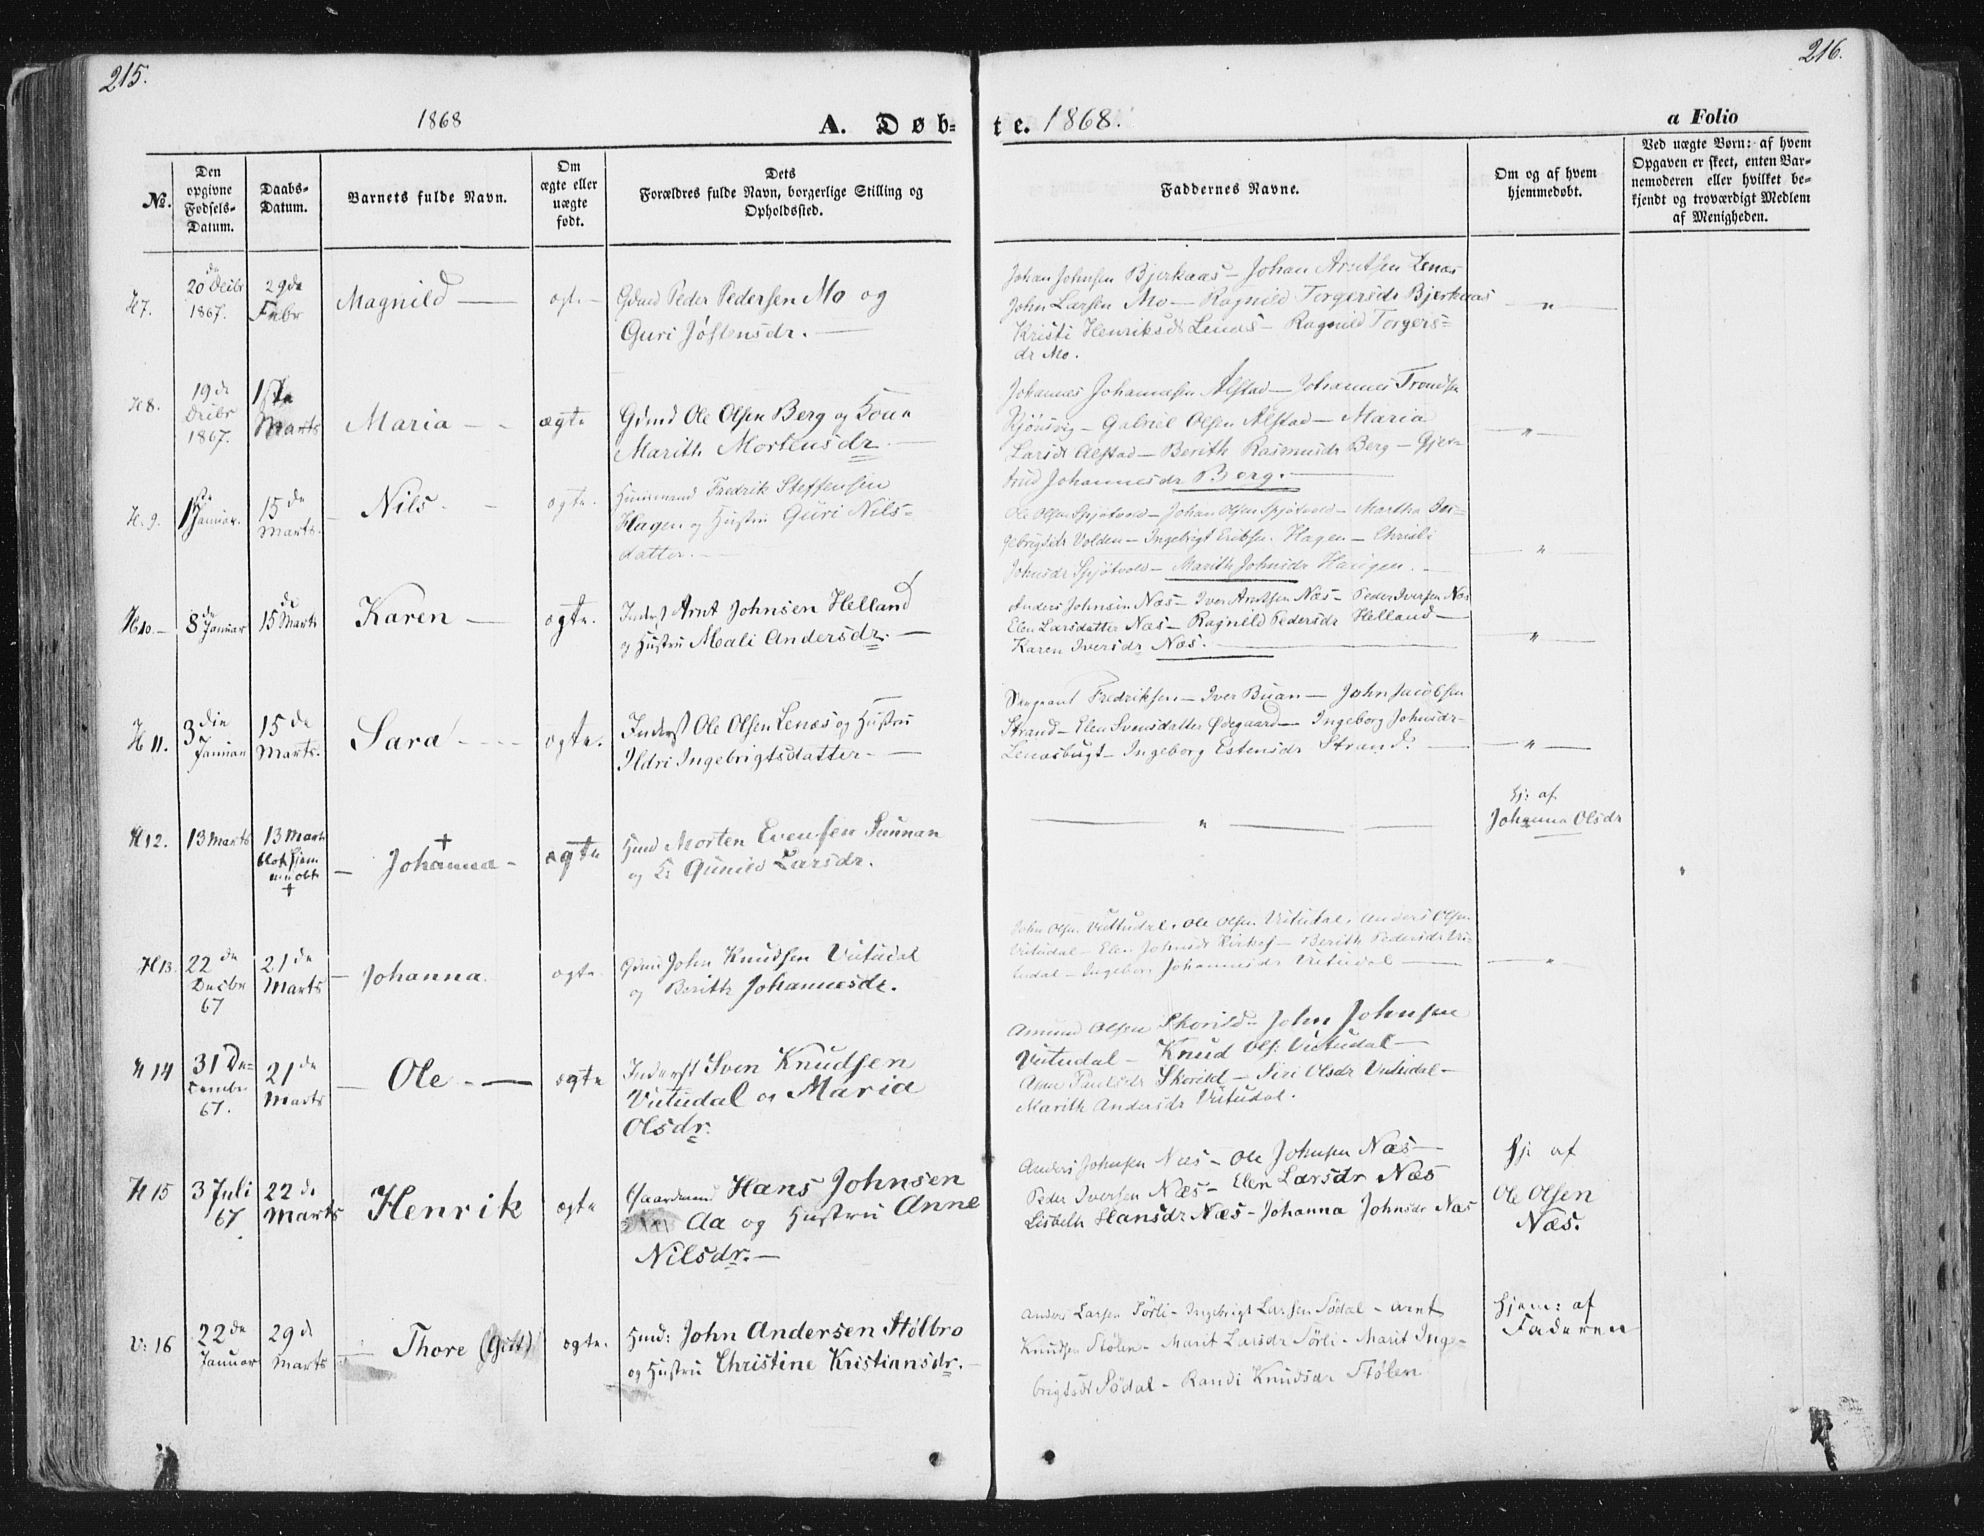 215.
216.
1868
A. Døb-
te. 1868.
a Folio
№.
Den
opgivne
Fødsels-
Datum.
Daabs-
Datum.
Barnets fulde Navn.
Om
ægte eller
uægte
født.
Dets
Forældres fulde Navn, borgerlige Stilling og
Opholdssted.
Faddernes Navne.
Om og af hvem
hjemmedøbt.
Ved uægte Børn: af hvem
Opgaven er skeet, enten Bar-
nemoderen eller hvilket be-
kjendt og troværdigt Medlem
af Menigheden.
H7.
20 de Decbr
1867.
29 de
Febr
Magnild —
Gdmd Peder Pedersen Mo og
Guri Jostensdr. —
Johan Johnsen Bjerkaas — Johan Arntsen Lenæs
John Larsen Mo — Ragnild Torgersdr Bjerkaas
Kristi Henriksdr Lenæs — Ragnild Torgers=
dr Mo.
"
H8.
19 de
Decbr
1867.
1ste
Marts
Maria —
ægte
Gdmd Ole Olsen Berg og Kone
Marith Mortensdr. —
Johannes Johannesen Alstad — Johannes Trondsen
— Gabriel Olsen Alstad — Maria
Larsdr Alstad — Berith Rasmusdr Berg — Gjer=
trud Johannesdr Berg. —
"
H. 9.
1ste
Januar.
15 de
Marts.
Nils.
ægte.
Huusmand Fredrik Steffensen
Hagen og Hustru Guri Nils=
datter. —
Ole Olsen Spjøtvold — Johan Olsen Spjøtvold — Martha In=
gebrigtsdr Volden — Ingebrigt Eriksen Hagen —
Johnsdr Spjøtvold — Marith Johnsdr Haugen. —
"
H10 —
8 de Januar
15 de Marts
Karen —
ægte.
Inderst Arnt Johnsen Helland
og Hustru Mali Andersdr. —
Anders Johnsen Næs — Iver Arntsen Næs — Peder Iversen Næs
Elen Larsdatter Næs — Ragnild Pedersdr Helland —
Karen Iversdr Næs. —
"
H 11.
3 die
Januar
15 de
Marts.
Sara —
ægte.
Inderst Ole Olsen Lenæs og Hustru
Ildri Ingebrigtsdatter. —
Sergeant Fredriksen — Iver Buan — John Jacobsen
Strand — Elen Svensdatter Ødegaard — Ingeborg Johnsdr
Lenæsbugt — Ingeborg Estensdr Strand. —
"
H12.
13 Marts
13 Marts
blot hjem
medøbt
+
+
Johanna —
ægte
Hmd Morten Evensen Sunnan
og K Gunild Larsdr.
"
Hj: af
Johanna Olsdr
H13.
22 de
Decbr
67
21 de
Marts
Johanna.
ægte.
Gdmd John Knudsen Vutudal
og Berith Johannesdr.
John Olsen Vuttudal, Ole Olsen Vutudal, Anders Olsen
Vutudal — Elen Johnsdr — Berith Pedersdr Vu=
tudal — Ingeborg Johannesdr Vutudal —
"
H 14
31 De=
cember
67.
21 de
Marts
Ole —
ægte
Inderst Sven Knudsen
Vutudal og Maria
Olsdr.
Amund Olsen Skorild — John Johnsen
Vutudal — Knud Ols: Vutudal —
Ane Paulsdr Skorild — Siri Olsdr Vutudal —
Marith Andersdr Vutudal.
H 15
3 Juli
67.
22 de
Marts
Henrik
ægte
Gaardmand Hans Johnsen
Aa og Hustru Anne
Nilsdr. —
Anders Johnsen Næs — Ole Johnsen Næs —
Peder Iversen Næs — Elen Larsdr Næs
Lisbeth Hansdr Næs — Johanna Johnsdr Næs
Hj. af
Ole Olsen
Næs.
V: 16
22 de
Januar
29 de
Marts
Thore (Gut)
ægte.
Hmd: John Andersen Stølbro
og Hustru Christine Kristiansdr. —
Anders Larsen Sörli — Ingebrigt Larsen Södal — Arnt
Knudsen Stölen — Marit Larsdr Sörli — Marit Inge=
brigtsdr Södal — Randi Knudsdr Stölen
Hjem: af
Faderen